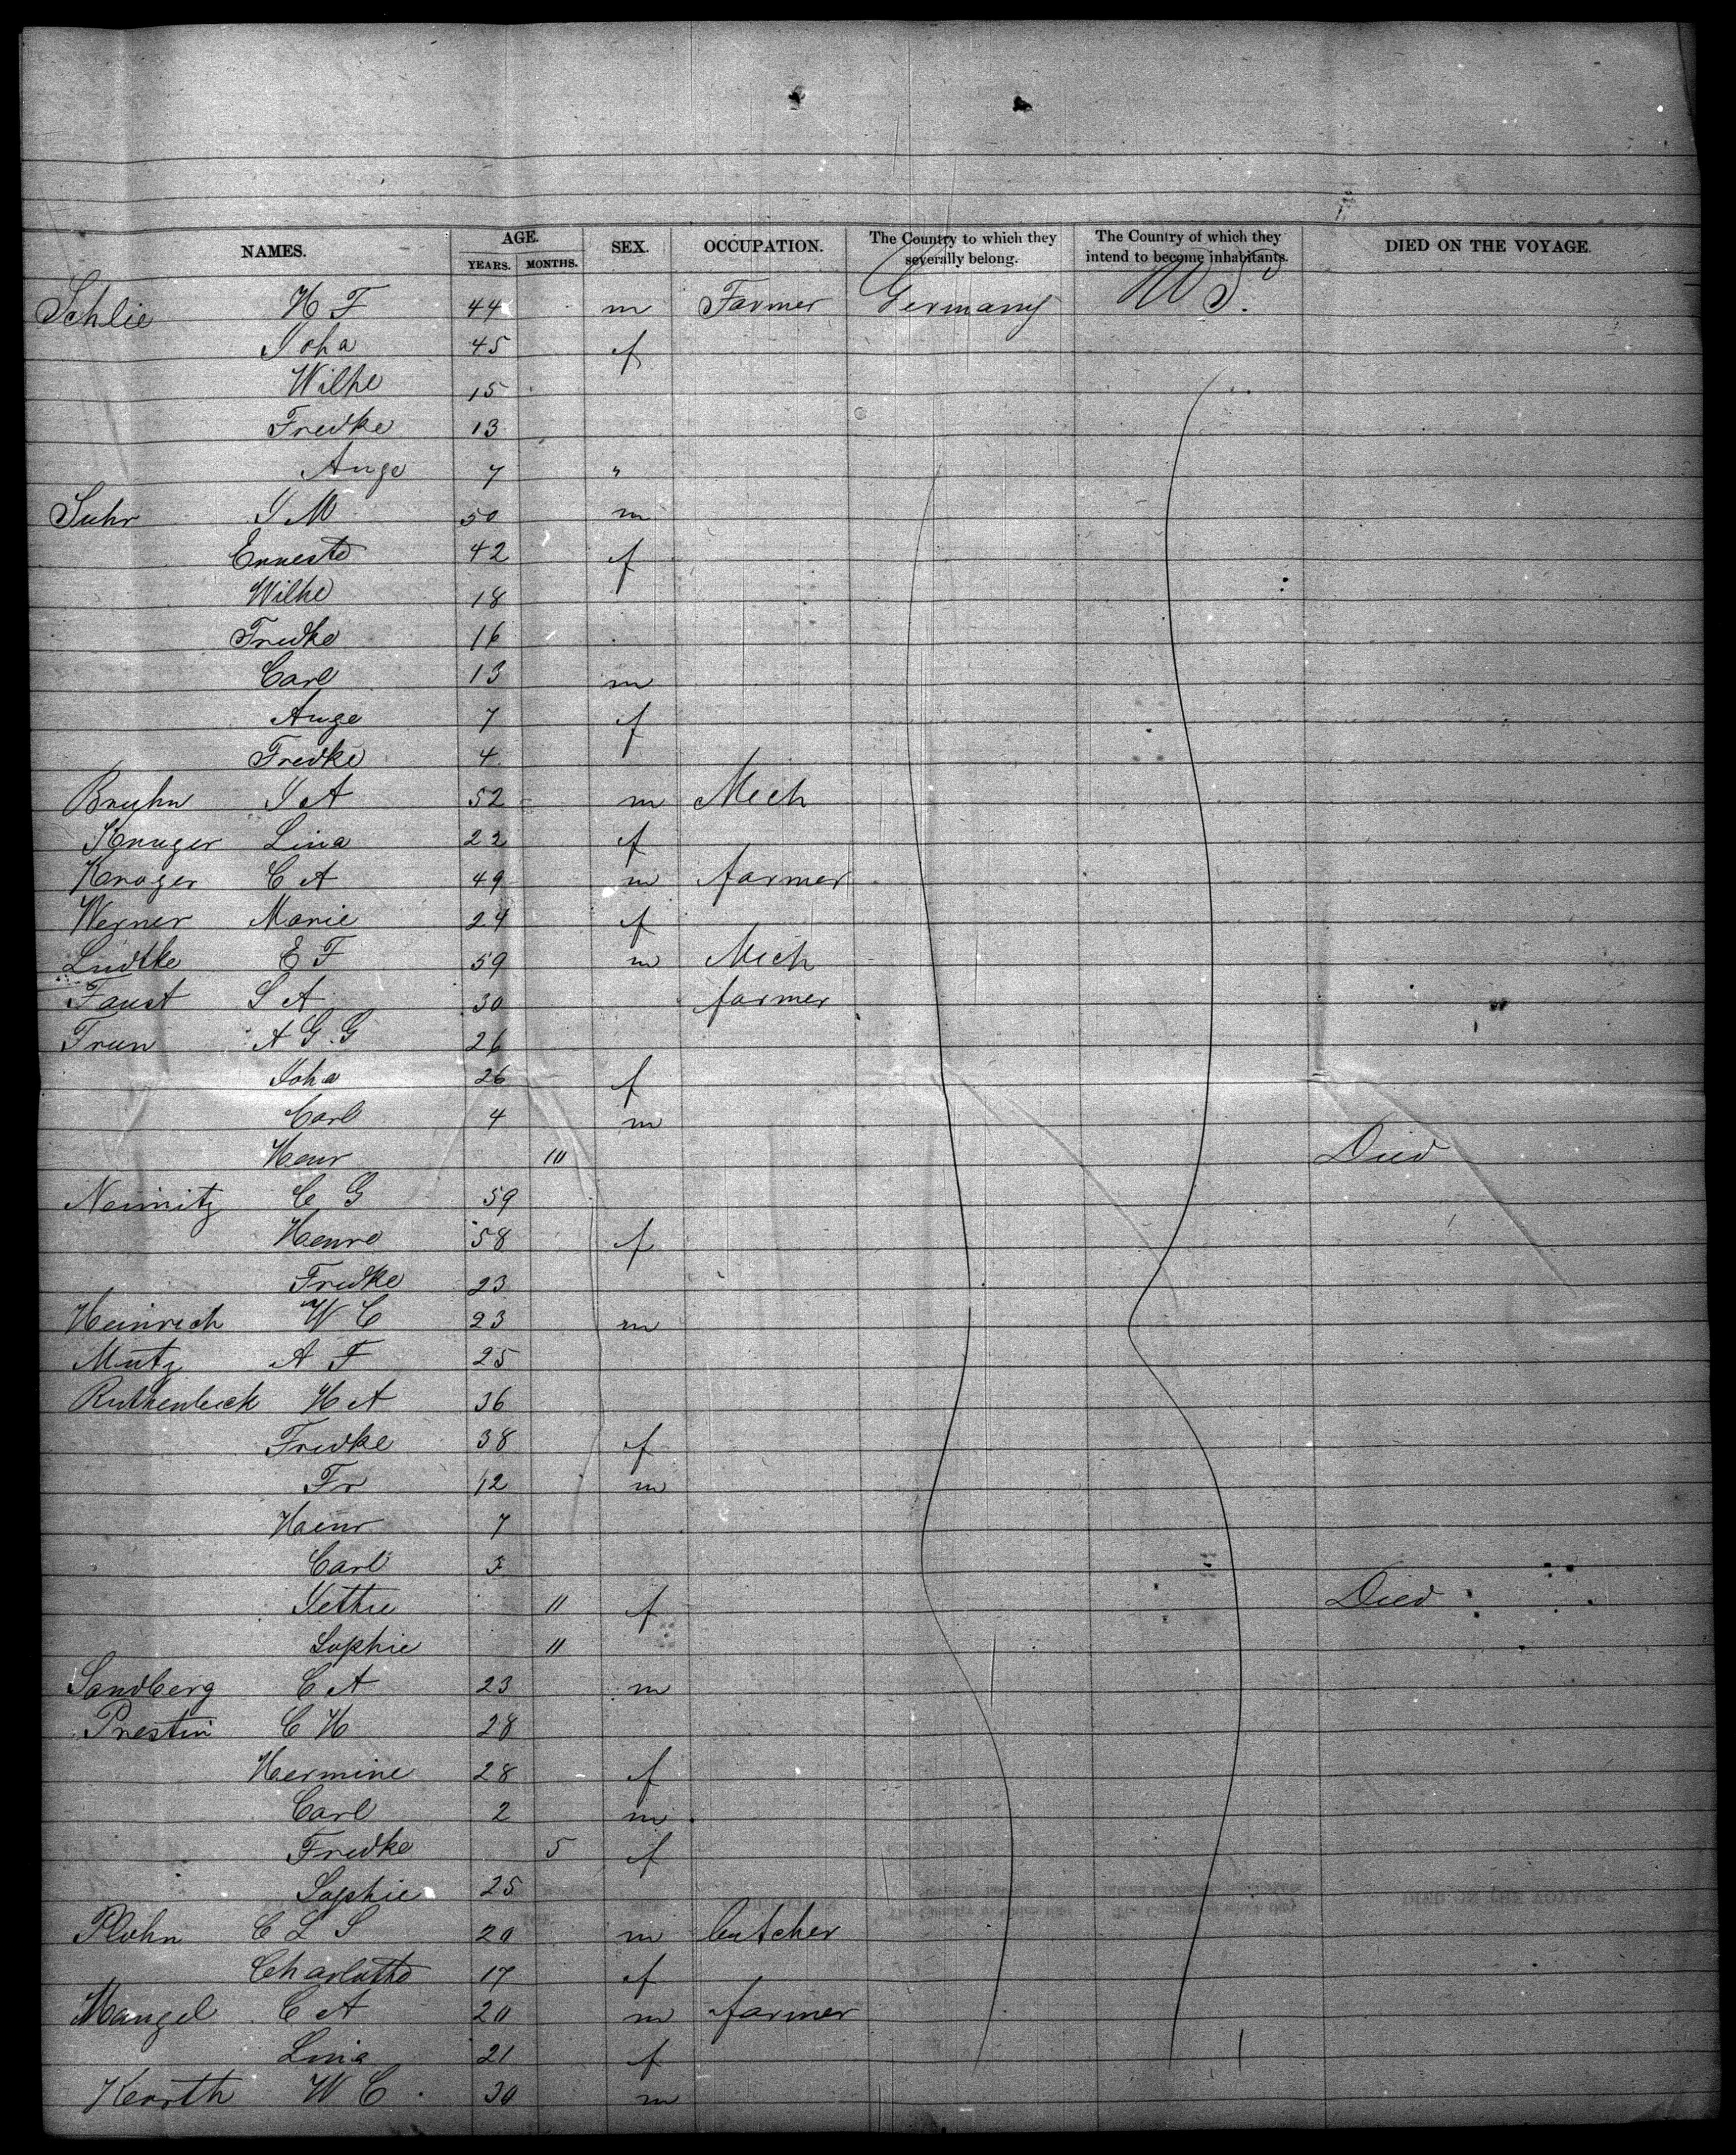 NAMES. AGE. SEX. OCCUPATION. The Country to which they severally belong. The Country of which they intend to become inhabitants. DIED ON THE VOYAGE.
YEARS. MONTHS.
Schlie H F 44 m Farmer Germany U S.
Joha 45 f
Wilhe 15
Fredke 13
Auge 7 "
Suhr J M 50 m
Erneste 42 f
Wilhe 18
Fredke 16
Carl 13 m
Auge 7 f
Fredke 4
Bruhn J A 52 m Mech
Kruger Lina 22 f
Kroger C A 49 m farmer
Werner Marie 24 f
Ludtke E F 59 m Mech
Faust S A 30 farmer
Trun A G G 26
Joha 26 f
Carl 4 m
Henr 10 Died
Neimitz C G 59
Henre 58 f
Fredke 23
Heinrich W C 23 m
Mutz A F 25
Ruthenbeck H A 36
Fredke 38 f
Fr 12 m
Heinr 7
Carl 5
Jettie 11 f Died
Sophie 11
Sandberg C A 23 m
Prestin C H 28
Hermine 28 f
Carl 2 m
Fredke 5 f
Sophie 25
Plohn C L J 20 m butcher
Charlotte 17 f
Mangel C A 20 m farmer
Lina 21 f
Kerrth W C 30 m